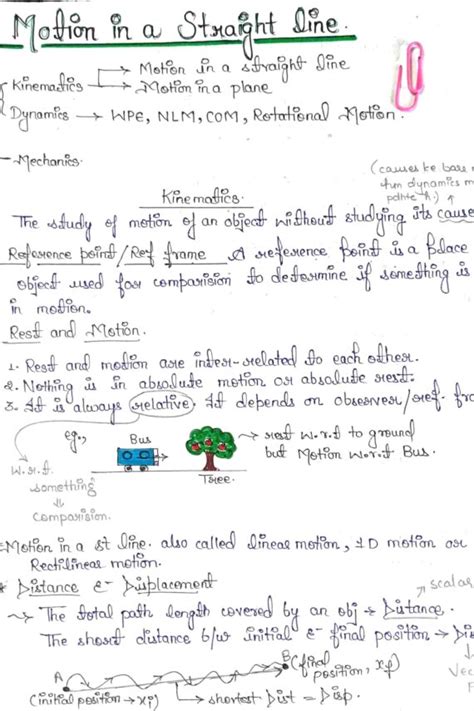 Motion in a Straight line.
Kinematics → Motion in a straight line
→ Motion in a plane
Dynamics → WPE, NLM, COM, Rotational Motion.
- Mechanics.
(causes ke bare
hum dynamics m
padhte h)
Kinematics.
The study of motion of an object without studying its cause
Reference point/Ref frame A reference point is a place
object used for comparision to determine if something is
in motion.
Rest and Motion.
1. Rest and motion are inter-related to each other.
2. Nothing is in absolute motion or absolute rest.
3. It is always relative. It depends on observer/ref. fra
eg., Bus → rest w.r.t to ground
but Motion w.r.t Bus.
Tree.
w.r.t.
something
⇓
Comparision.
Motion in a st line. also called linear motion, 1D motion or
Rectilinear motion.
* Distance & Displacement
scalar
⇝ The total path length covered by an obj → Distance.
The short distance b/w initial & final position → Dis
Vec
A B (final
position, xf)
(initial position → xi) → shortest Dist = Disp.